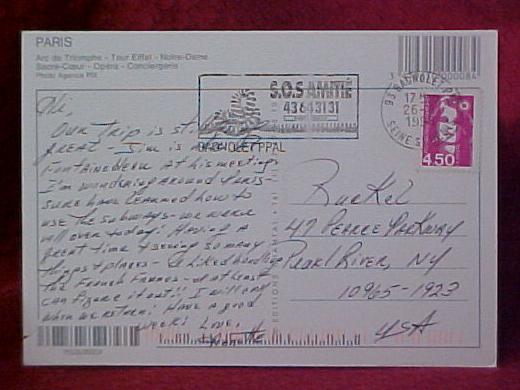 PARIS
Arc de Triomphe - Tour Eiffel - Notre-Dame
Sacré-Cœur - Opéra - Conciergerie
Photo Agence PIX
S.O.S AMITIÉ
43643131
BAGNOLET PPAL
93 BAGNOLET P
17
26
19
SEINE S
4,50
OUR TRIP IS
GREAT - IS
FONTAINEBLEAU AT HIS MEETING
I'M WANDERING AROUND PARIS
SURE HAVE LEARNED HOW TO
USE THE SUBWAYS - WE WERE
ALL OVER TODAY! HAVING A
GREAT TIME & SEEING SO MANY
THINGS & PLACES - I LIKED
THE FRENCH FRANCS - AT LEAST
CAN FIGURE IT OUT! I WILL
WHEN WE RETURN! HAVE A GOOD
WEEK! LOVE,
47 PEARCE PARKWAY
PEARL RIVER, NY
10965-1923
USA